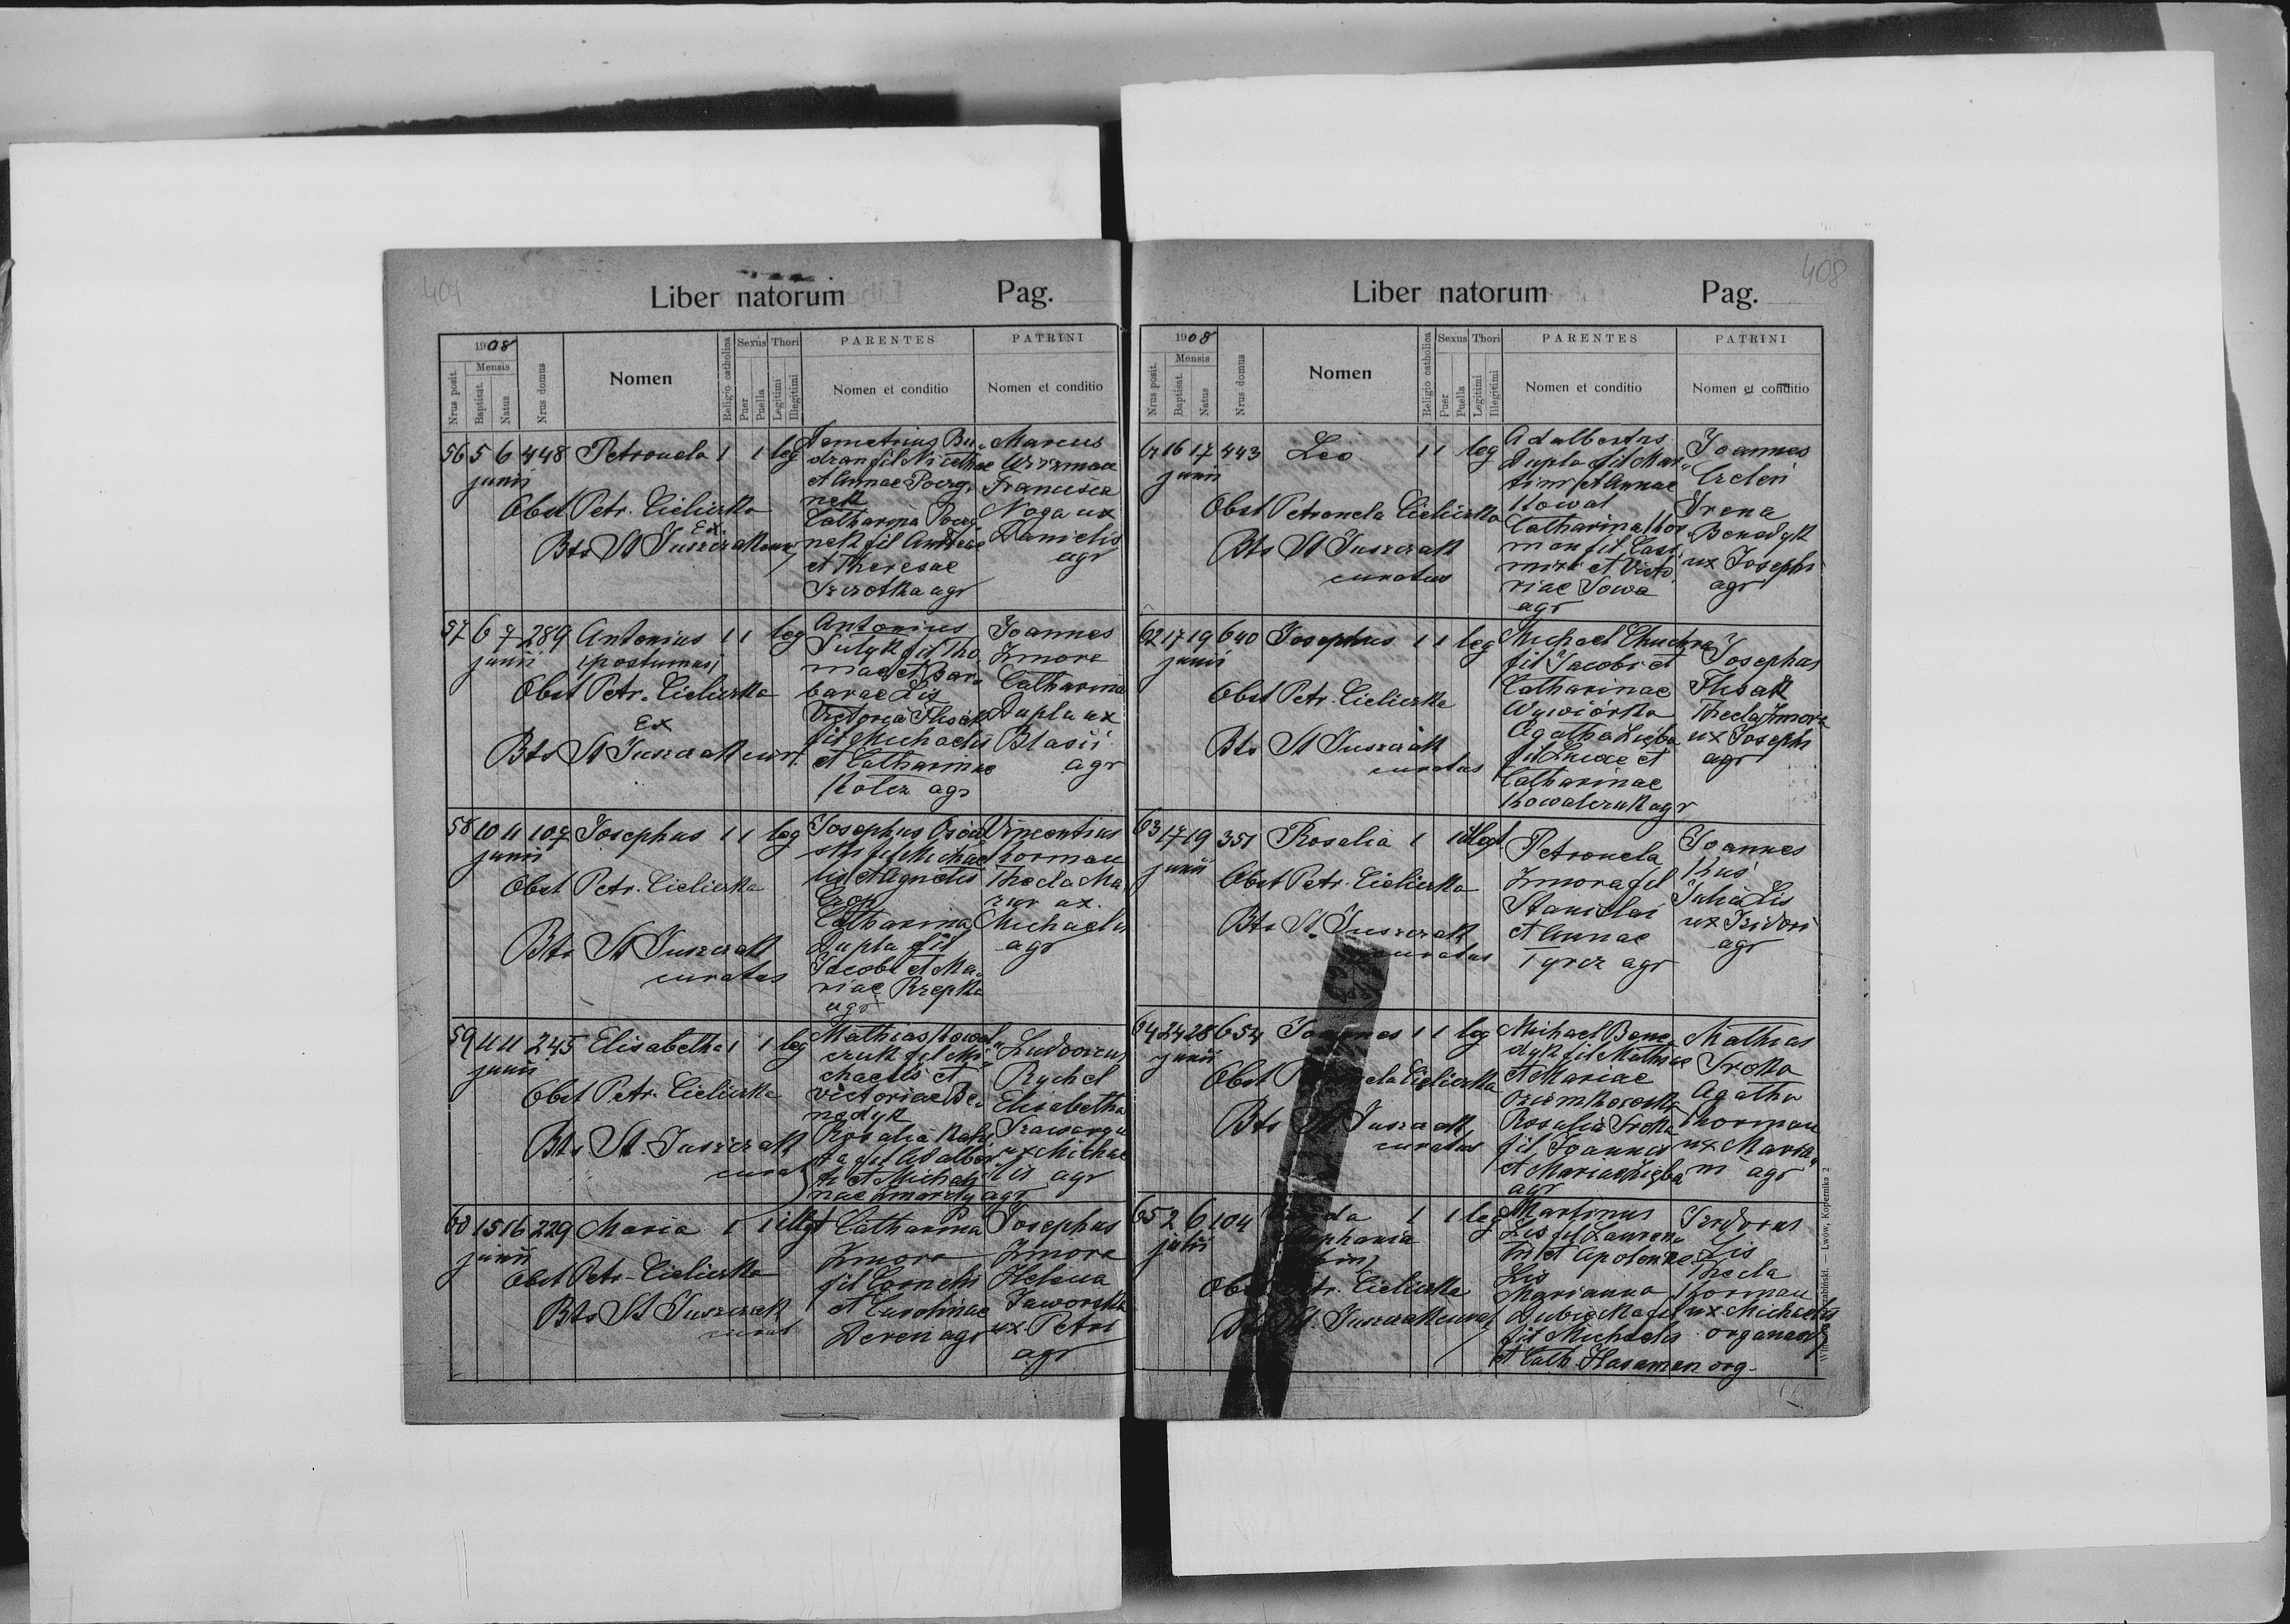 404
Liber natorum Pag.
1908 Nomen Religio catholica Sexus Thori PARENTES PATRINI
Nrus posit. Mensis Baptisat. Natus Nrus domus Puer Puella Legitimi Illegitimi Nomen et conditio Nomen et conditio
56 5 6 448 Petronela 1 1 leg
junii
Obst Petr. Cielicka
Ex
Bts St Juszczak
Demetrius Bu
dran fil Nicetae
et Annae
Catharina
fil Andreae
et Theresae
agr
Marcus
Francisca
Noga ux
Danielis
agr
57 6 7 289 Antonius 1 1 leg
junii (postumus)
Obst Petr. Cielicka
Ex
Bts St Juszczak cur.
Antonius
fil Tho
mae et Bar
barae Lis
Victoria Flisak
fil Michaelis
et Catharinae
agr
Joannes
Zmora
Catharina
Dupla ux
Blasii
agr
58 10 11 107 Josephus 1 1 leg
junii
Obst Petr. Cielicka
Bts St Juszczak
curatus
Josephus
fil Michae
lis et Agnetis
Catharina
Dupla fil
Jacobi et Ma
riae Rzepka
agr
Vincentius
Korman
Thecla Ma
zur ux.
Michaelis
agr
59 11 11 245 Elisabetha 1 1 leg
junii
Obst Petr. Cielicka
Bts St. Juszczak
curat
Mathias Kowal
czuk fil Mi
chaelis et
Victoriae Be
nedyk
Rosalia
fil Adalber
ti et
agr
Ludovicus
Rychel
Elisabetha
ux Michae
lis agr
60 15 16 229 Maria 1 1 illegt
junii
Obst Petr. Cielicka
Bts St Juszczak
curat
Catharina
Zmora
fil Cornelii
et Carolinae
Deren agr
Josephus
Zmora
Helena
Jaworska
ux. Petri
agr
408
Liber natorum Pag.
1908 Nomen Religio catholica Sexus Thori PARENTES PATRINI
Nrus posit. Mensis Baptisat. Natus Nrus domus Puer Puella Legitimi Illegitimi Nomen et conditio Nomen et conditio
61 16 17 443 Leo 1 1 leg
junii
Obst Petronela Cielicka
Bts St Juszczak
curatus
Adalbertus
Dupla fil Mar
tini et Annae
Kowal
Catharina Kor
man fil Casi
miri et Victo
riae Sowa
agr
Joannes
Irena
Benedyk
ux Josephi
agr
62 17 19 640 Josephus 1 1 leg
junii
Obst Petr. Cielicka
Bts St Juszczak
curatus
Michael Chuchra
fil Jacobi et
Catharinae
Wywiórka
Agatha Zięba
fil Lucae et
Catharinae
Kowalczuk agr
Josephus
Flisak
Thecla Zmora
ux Josephi
agr
63 17 19 351 Rosalia 1 1 illegt
junii
Obst Petr. Cielicka
Bts St. Juszczak
curatus
Petronela
Zmora fil
Stanislai
et Annae
agr
Joannes
Kuś
Julia Lis
ux Isidori
agr
64 24 28 654 Joannes 1 1 leg
junii
Obst Cielicka
Bts St Juszczak
curatus
Michael Bene
dyk fil Mathiae
et Mariae
Rosalia Sroka
fil Joannis
et Mariae Zięba
agr
Mathias
Sroka
Agatha
Korman
ux Maria
ni agr
65 2 6 104 1 1 leg
julii
Obst Petr. Cielicka
Bts St. Juszczak curat
Martinus
Lis fil Lauren
tii et Apoloniae
Lis
Marianna
fil Michaelis
et Cath org.
Isidorus
Lis
Thecla
Korman
ux. Michaelis
Lwów, Kopernika 2